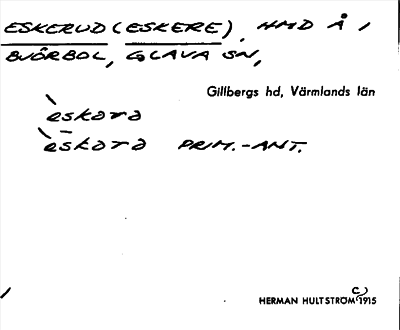 ESKERUD (ESKERE), HMD Å I
BJÖRBOL, GLAVA SN,
Gillbergs hd, Värmlands län
̀eskara
̀es̄kara PRIM.-ANT.
HERMAN HULTSTRÖM C) 1915